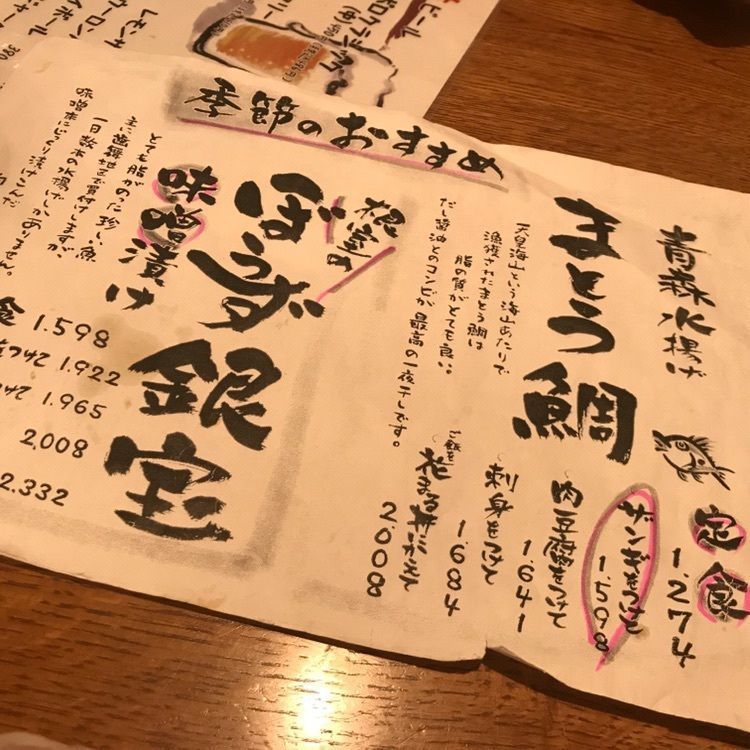 季節のおすすめ
青森水揚げ
まとう鯛
天皇海山という海山あたりで
漁獲されたまとう鯛は
脂の質がとても良い
だし醤油とのコンビが最高の一夜干しです。
定食
1.274
ザンギをつけて
1.598
肉豆腐をつけて
1.641
刺身をつけて
1.684
ご飯を
花まる丼にかえて
2.008
根室の
ぼうず銀宝
味噌漬け
とても脂がのった珍しい魚
主に道鍋地区で買付けしますが
一日数本の水揚げしかありません。
味噌床にじっくり漬けこんだ
食 1.598
つけて 1.922
つけて 1.965
2.008
2.332
ビール
サッポロクラシック
レモンサ
390